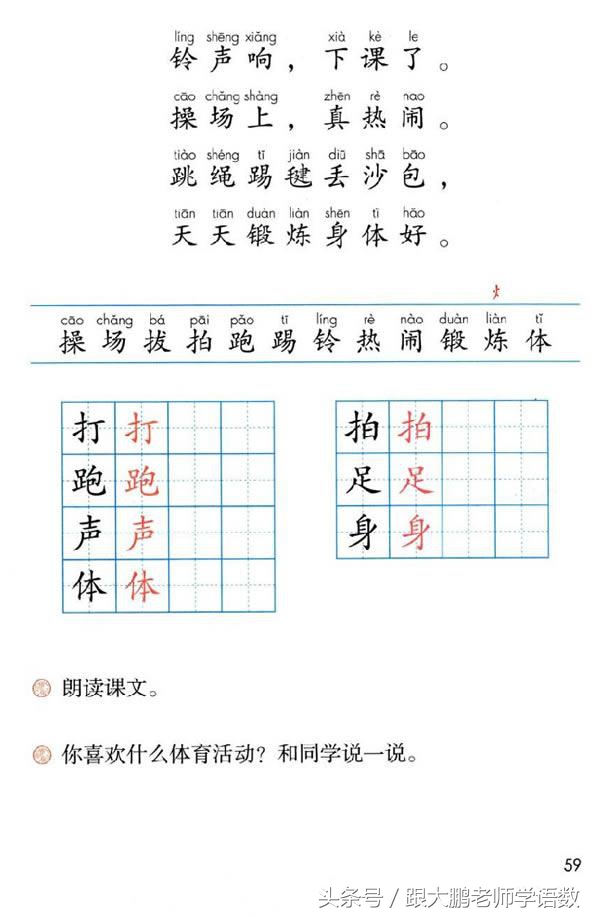 líng shēng xiǎng xià kè le
铃声响，下课了。
cāo chǎng shàng zhēn rè nao
操场上，真热闹。
tiào shéng tī jiàn diū shā bāo
跳绳踢毽丢沙包，
tiān tiān duàn liàn shēn tǐ hǎo
天天锻炼身体好。
火
cāo chǎng bá pāi pǎo tī líng rè nào duàn liàn tǐ
操 场 拔 拍 跑 踢 铃 热 闹 锻 炼 体
打 打 拍 拍
跑 跑 足 足
声 声 身 身
体 体
朗读课文。
你喜欢什么体育活动？和同学说一说。
59
头条号 / 跟大鹏老师学语数